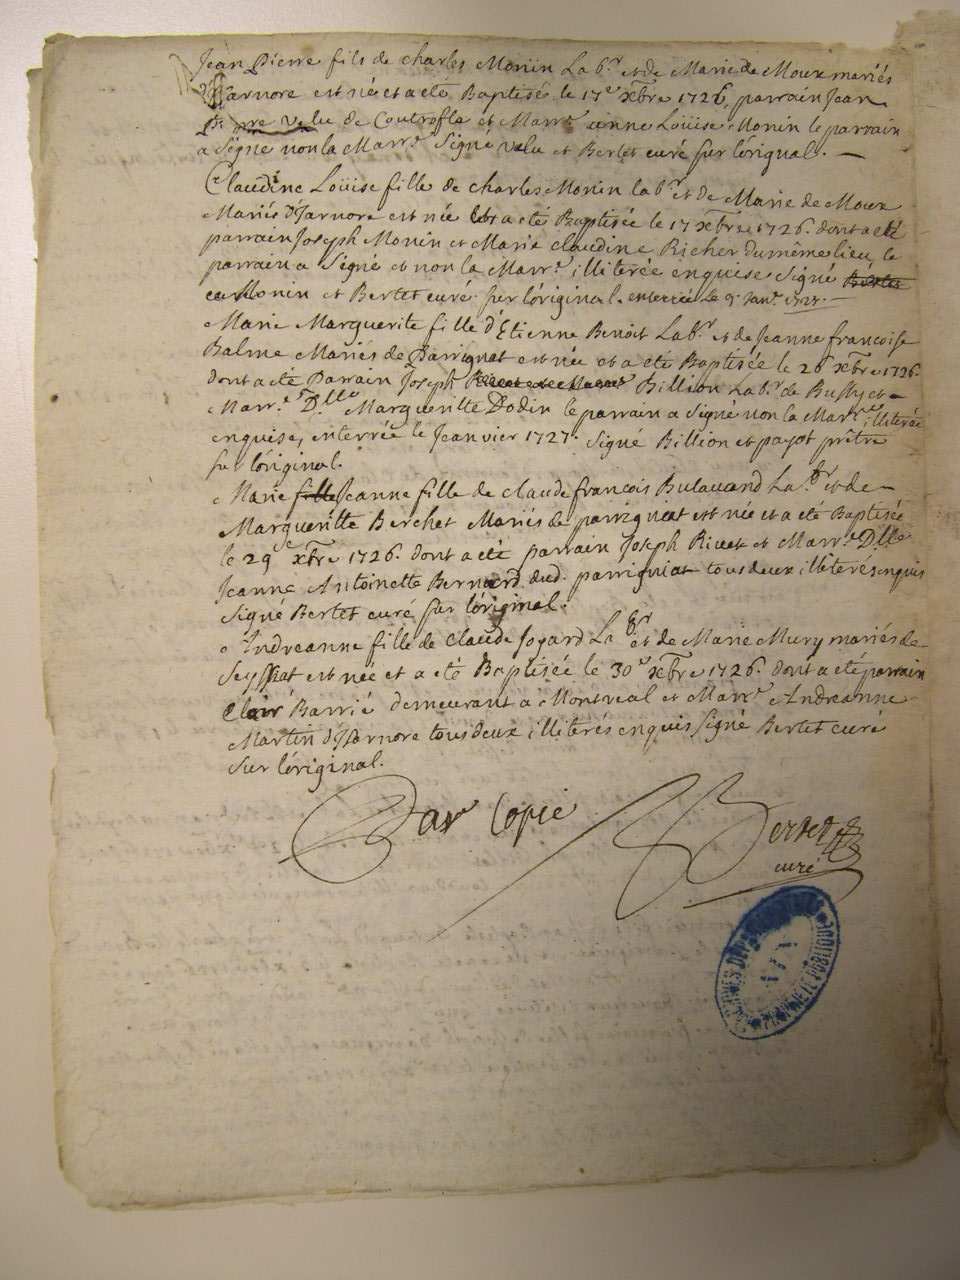 Jean Pierre fils de Charles Monin Lab.r et de Marie de Moux mariés
d'Isarnore est né et a été Baptisé le 17e xbre 1726, parrain Jean
pre velu de Coutrofla et Marr.e anne Loüise Monin le parrain
a Signé non la Marr.e Signé velu et Bertet curé sur l'original. —
Claudine Loüise fille de charles Monin lab.r et de Marie de Moux
Mariés d'Isarnore est née et a été Baptisée le 17 xbre 1726. dont a eté
parrain Joseph Monin et Marie claudine Richer du même lieu, le
parrain a Signé et non la Marr.e illiterée enquise Signé Bertet
Monin et Bertet curé sur l'original. enterrée le 9. Janv. 1727. —
Marie Marguerite fille d'Etienne Benoit Lab.r et de Jeanne francoise
Balme Mariés de Parrignat est née et a été Baptisée le 26 xbre 1726.
dont a été Parrain Joseph Billion Lab.r de Bussy et —
Marr.e D.lle Margueritte Dodin le parrain a Signé non la Marr.e illiterée
enquise, enterrée le Jeanvier 1727. Signé Billion et payot prêtre
sur l'original.
Marie fille Jeanne fille de claude françois Bulavand La.br et de —
Margueritte Berchet Mariés de parrigniat est née et a été Baptisée
le 29 xbre 1726. dont a été parrain Joseph Rivet et Marr.e D.lle
Jeanne Antoinette Bernard dud. parrigniat tous deux illiterés enquis
Signé Bertet curé sur l'original.
Andreanne fille de claude Joyard La.br et de Marie Mury mariés de
Seyssat est née et a été Baptisée le 30e xbre 1726. dont a été parrain
Clair Barrié demeurant a Montreal et Marr.e Andreanne
Martin d'Isarnore tous deux illiterés enquis Signé Bertet curé
sur l'original.
Par Copie
Bertet
curé
ARCHIVES DEPARTEMENTALES
AIN
PUBLIQUE